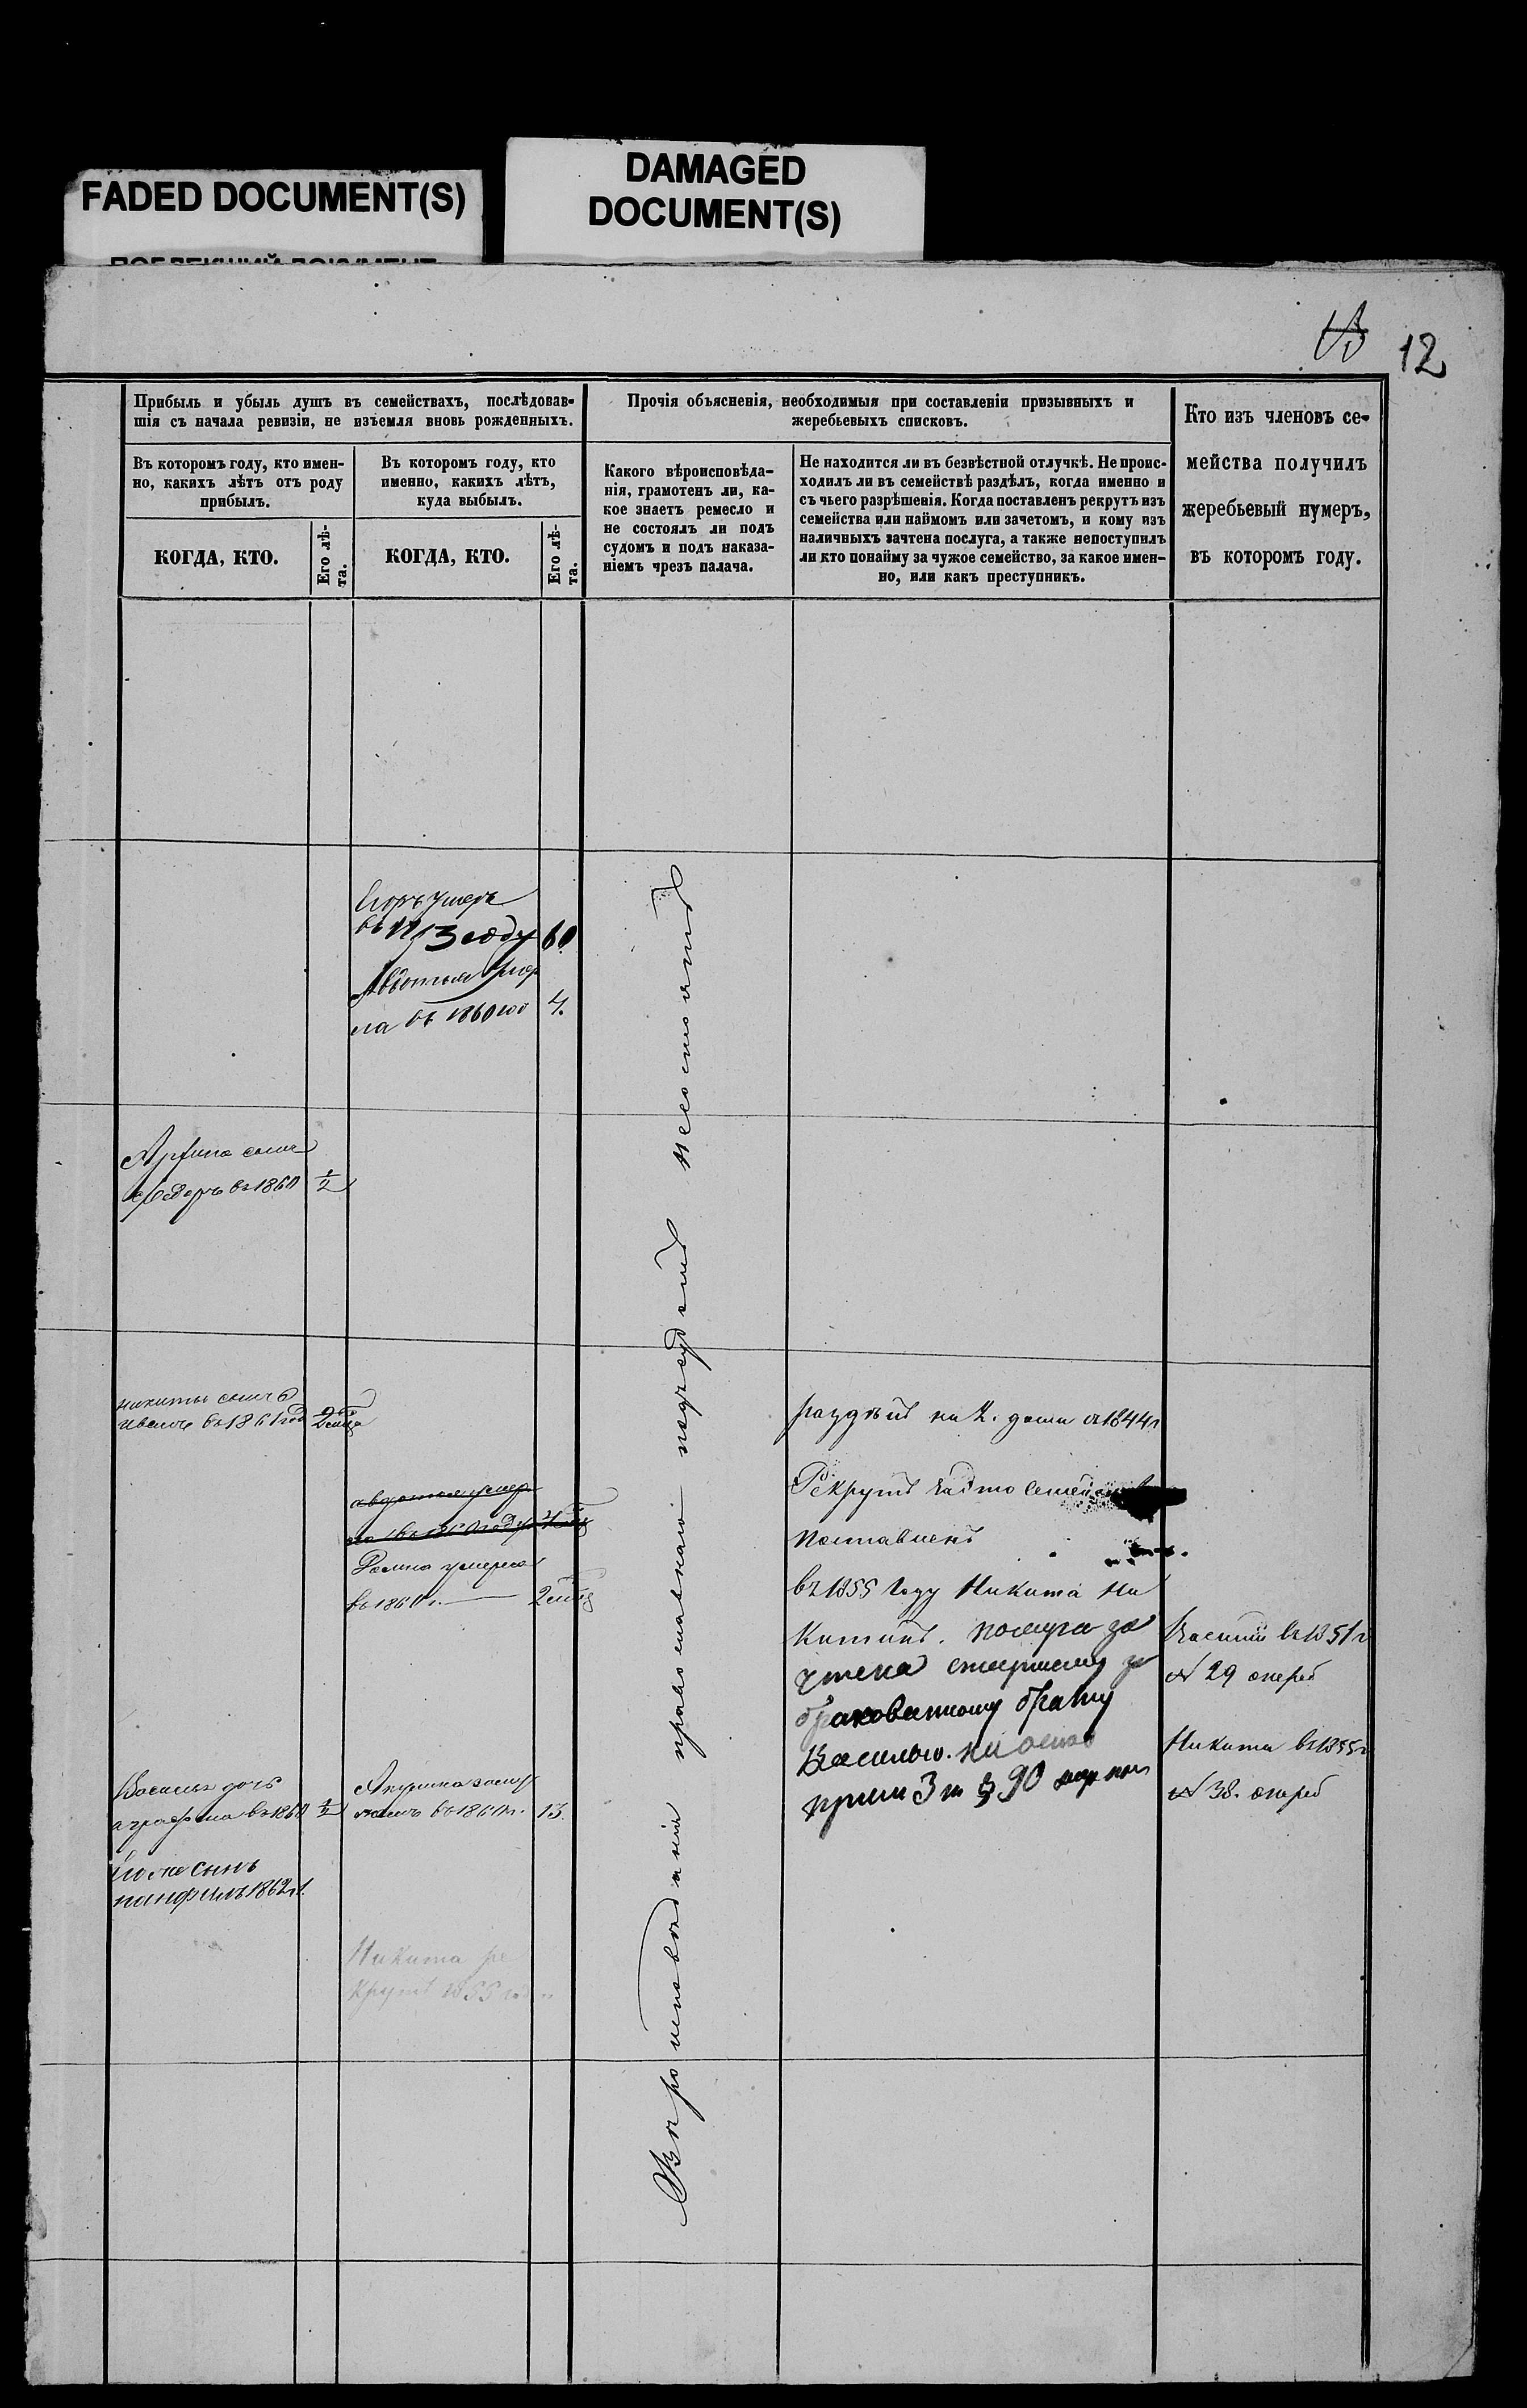 FADED DOCUMENT(S)
DAMAGED
DOCUMENT(S)
12
Прибыль и убыль душъ въ семействахъ, послѣдовав-
шія съ начала ревизіи, не изъемля вновь рожденныхъ.
Прочія объясненія, необходимыя при составленіи призывныхъ и
жеребьевыхъ списковъ.
Кто изъ членовъ се-
мейства получилъ
жеребьевый нумеръ,
въ которомъ году.
Въ которомъ году, кто имен-
но, какихъ лѣтъ отъ роду
прибылъ.
Въ которомъ году, кто
именно, какихъ лѣтъ,
куда выбылъ.
Какого вѣроисповѣда-
нія, грамотенъ ли, ка-
кое знаетъ ремесло и
не состоялъ ли подъ
судомъ и подъ наказа-
ніемъ чрезъ палача.
Не находится ли въ безвѣстной отлучкѣ. Не проис-
ходилъ ли въ семействѣ раздѣлъ, когда именно и
съ чьего разрѣшенія. Когда поставленъ рекрутъ изъ
семейства или наймомъ или зачетомъ, и кому изъ
наличныхъ зачтена послуга, а также непоступилъ
ли кто понайму за чужое семейство, за какое имен-
но, или какъ преступникъ.
КОГДА, КТО.
Его лѣ-
та.
КОГДА, КТО.
Его лѣ-
та.
Егоръ умеръ
въ году 60
Авдотья умер
ла въ 1860 год 4.
сынъ
Федоръ въ 1860 1/2
никиты сынъ
иванъ въ 1861 год
раздѣлъ на 2. дома въ 1844 г
авдотья умер
ла въ 1860 году
умерла
въ 1860 г.
Рекрутъ
поставленъ
въ 1855 году Никита Ни
китинъ. послуга за
чтена старшему за
бракованному брату
Василью.
прим 3 § 90
Василий въ 1851 г
№ 29 очеред
Никита въ 1855 г
№ 38. очеред
Василья дочь
аграфена въ 1860 1/2
Акулина замуж
въ 1861 г. 13.
его же сынъ
панфилъ 1862 г.
Никита ре
крутъ 1855 год
Вѣроисповѣданія православнаго подсудомъ несостоятъ